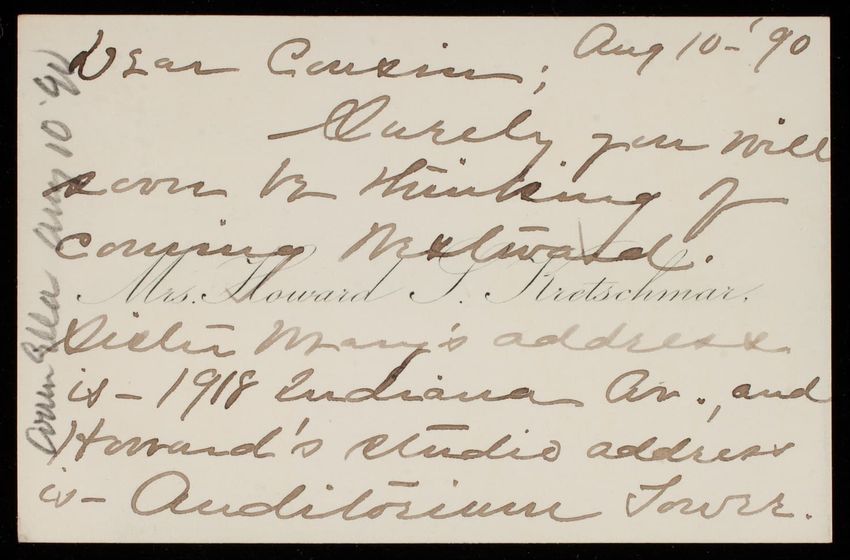 Aug 10-'90
Dear Cousin;
Surely you will
soon be thinking of
coming Westward.
Mrs. Howard S. Kretschmar.
Sister Mary's address
is - 1918 Indiana Av., and
Howard's studio address
is - Auditorium Tower.
Cousin Ella Aug 10 '90